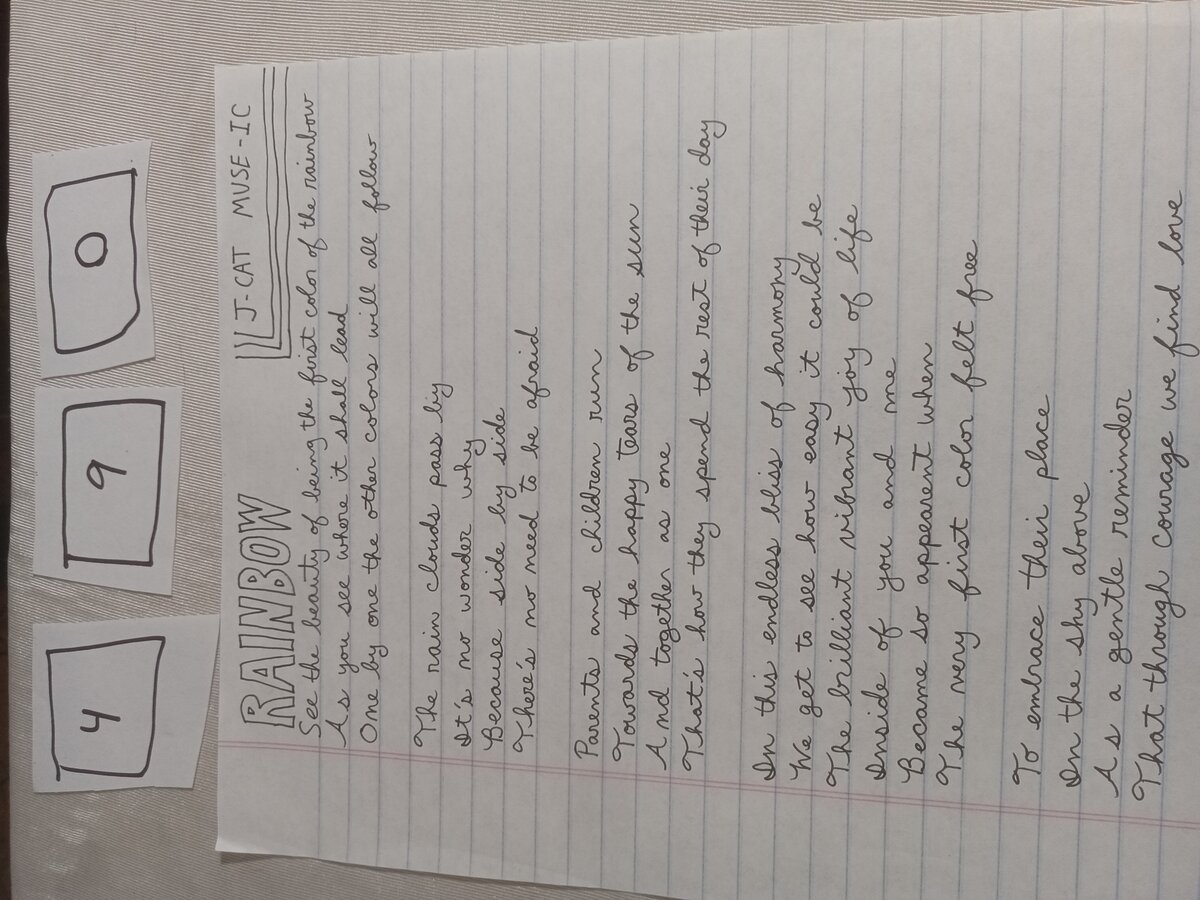 4 9 0
RAINBOW J-CAT MUSE-IC
See the beauty of being the first color of the rainbow
As you see where it shall lead
One by one the other colors will all follow
The rain clouds pass by
It's no wonder why
Because side by side
There's no need to be afraid
Parents and children run
Towards the happy tears of the sun
And together as one
That's how they spend the rest of their day
In this endless bliss of harmony
We get to see how easy it could be
The brilliant vibrant joy of life
Inside of you and me
Became so apparent when
The very first color felt free
To embrace their place
In the sky above
As a gentle reminder
That through courage we find love